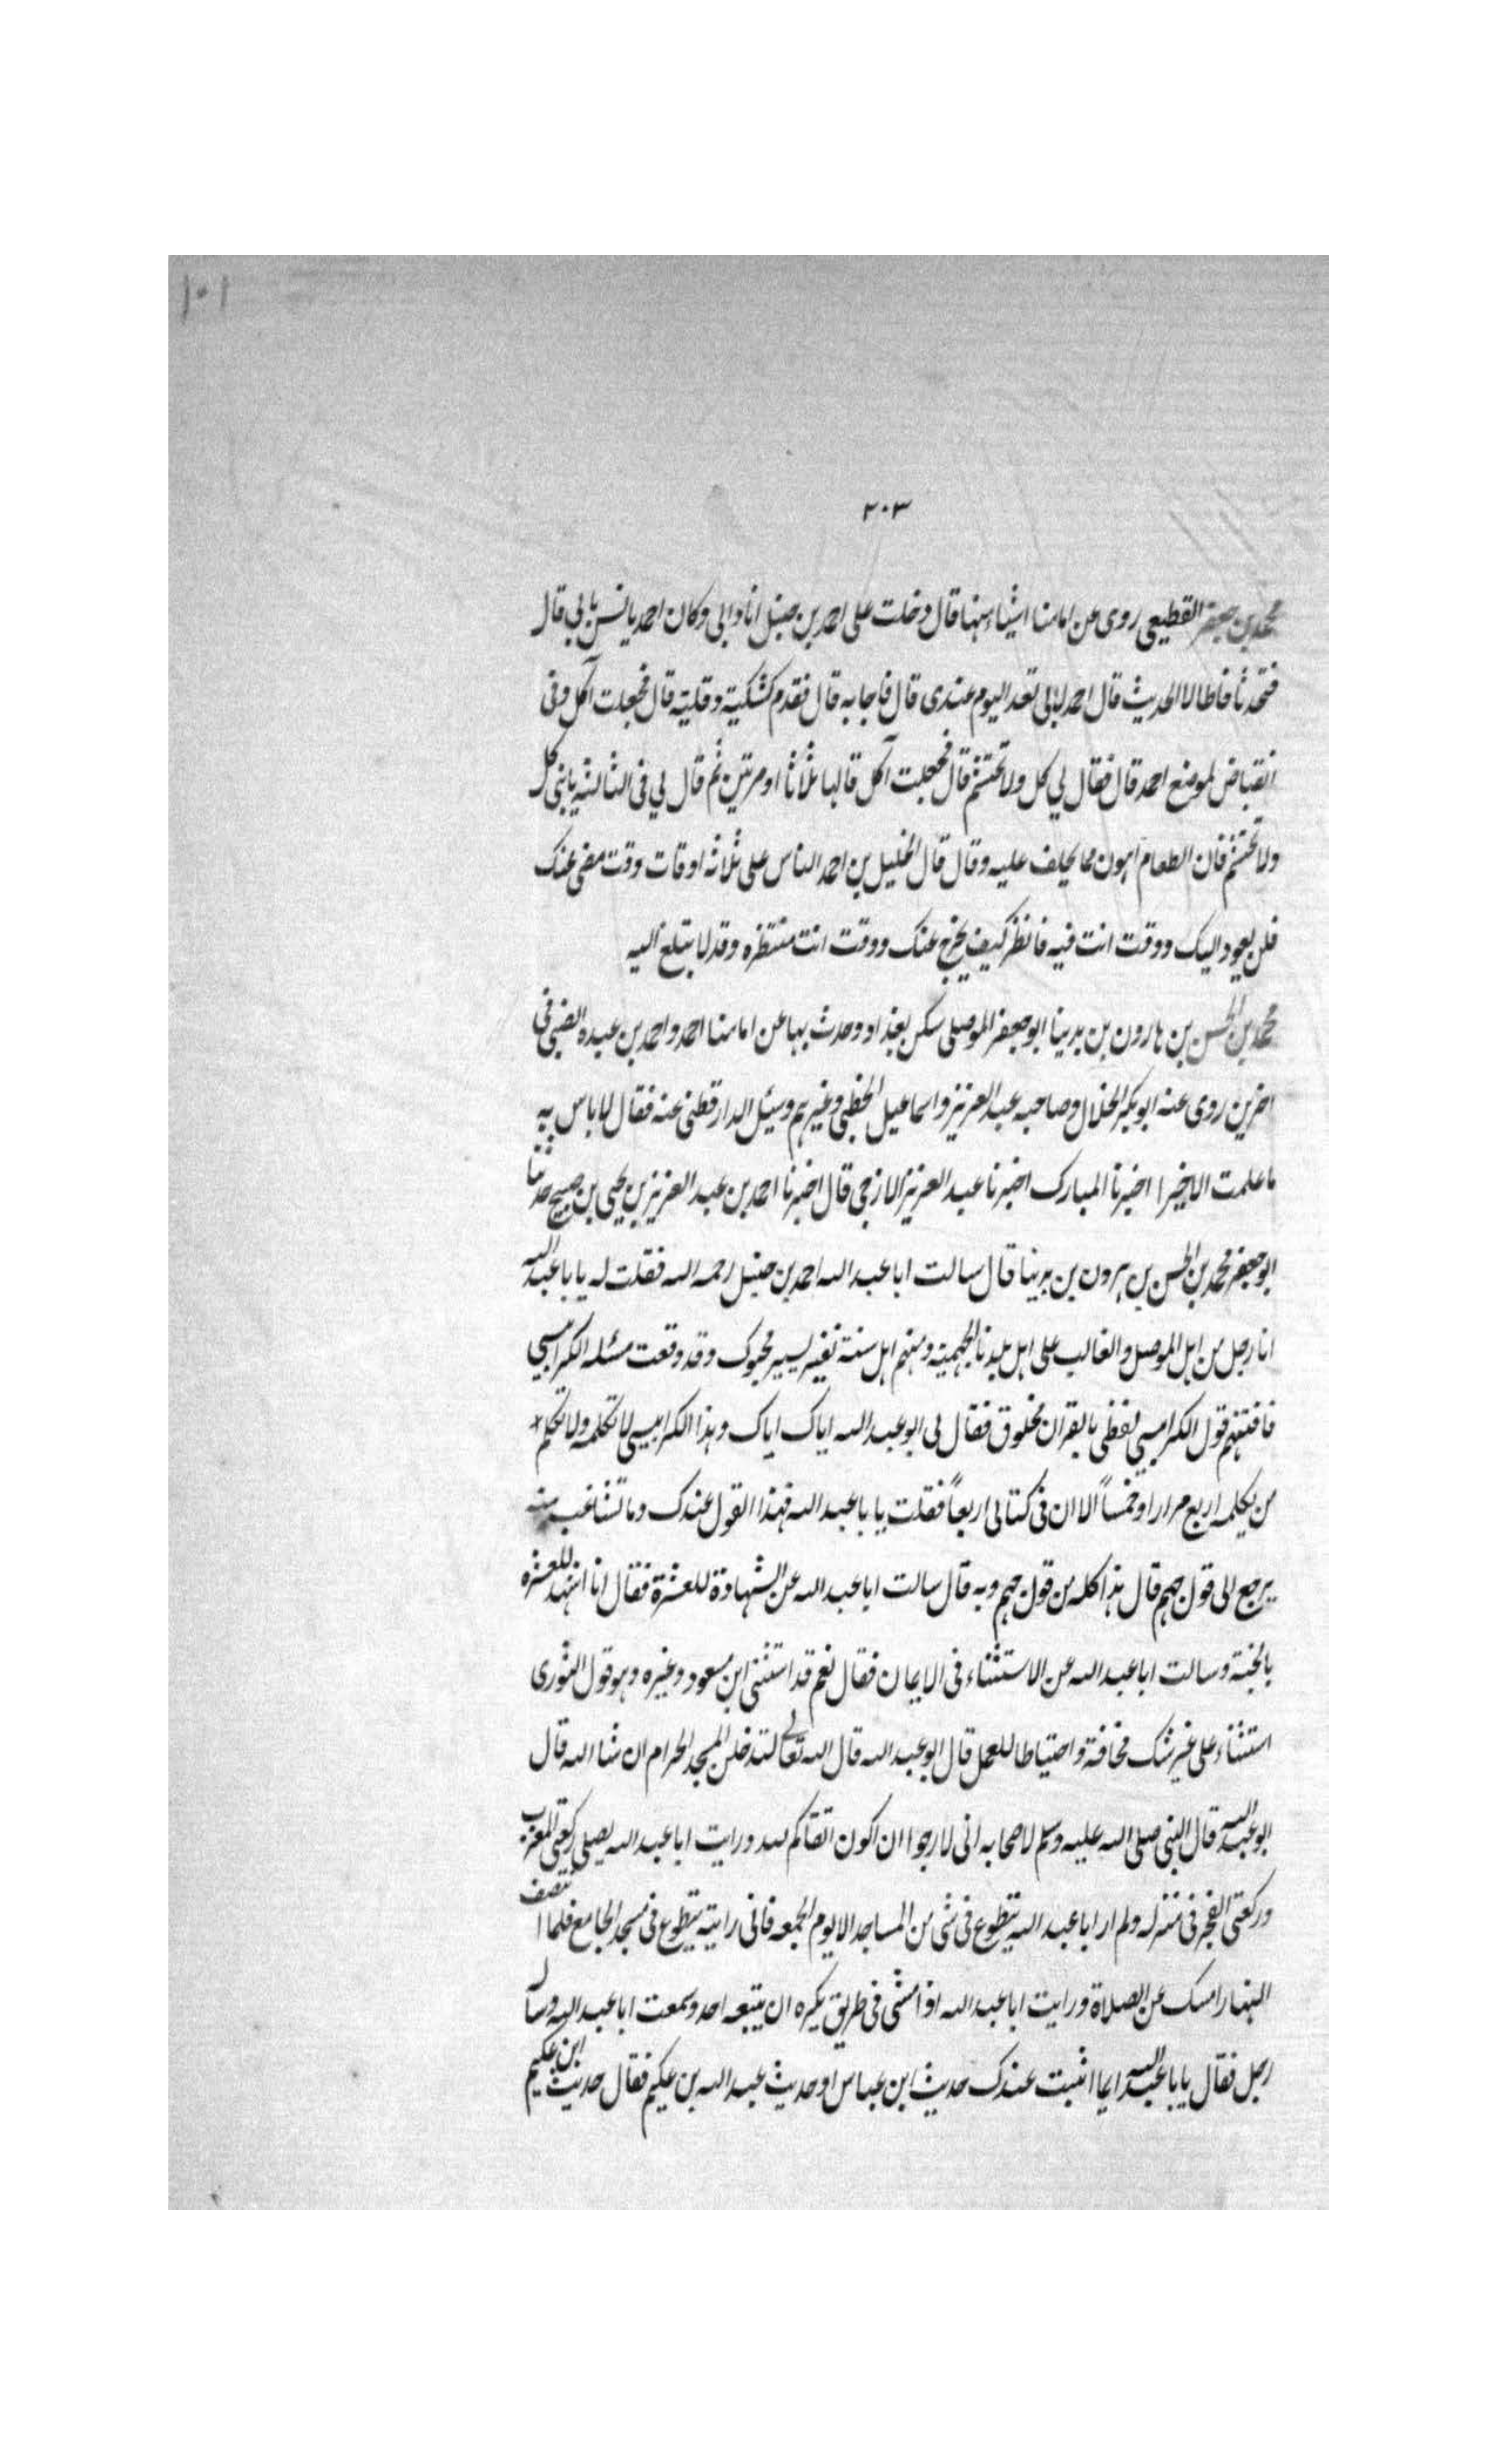 ١٠١
٢٠٣
محمد بن جعفر القطيعي روى عن امامنا اشياء منها قال دخلت على احمد بن حنبل انا وابي وكان احمد يانس بابي قال
فتحدثا فاطالا الحديث قال احمد لابي تغد اليوم عندى قال فاجابه قال فقدم كشكية وقلية قال فجعلت آكل وفى
انقباض لموضع احمد قال فقال لي كل ولا تحتشم قال فجعلت آكل قالها ثلاثا او مرتين ثم قال لي فى الثالثة يابنى كل
ولا تحتشم فان الطعام اهون مما يحلف عليه وقال قال الخليل بن احمد الناس على ثلاثة اوقات وقت مضى عنك
فلن يعود اليك ووقت انت فيه فانظر كيف يخرج عنك ووقت انت منتظره وقد لا تبلغ اليه
محمد بن الحسن بن هارون بن بدينا ابو جعفر الموصلى سكن بغداد وحدث بها عن امامنا احمد واحمد بن عبده الضبي فى
اخرين روى عنه ابو بكر الخلال وصاحبه عبد العزيز واسماعيل الخطبي وغيرهم وسئل الدارقطنى عنه فقال لا باس به
ما علمت الا خيرا اخبرنا المبارك اخبرنا عبد العزيز الازجي قال اخبرنا احمد بن عبد العزيز بن يحيى بن صبيح حدثنا
ابو جعفر محمد بن الحسن بن هرون بن بدينا قال سالت ابا عبد الله احمد بن حنبل رحمه الله فقلت له يا با عبد الله
انا رجل من اهل الموصل والغالب على اهل بلدنا الجهمية ومنهم اهل سنة نفير يسير محبوك وقد وقعت مسئله الكرابيسي
فافتنهم قول الكرابيسي لفظى بالقران مخلوق فقال لى ابو عبد الله اياك اياك وهذا الكرابيسي لا تكلمه ولا تكلم
من يكلمه اربع مرار او خمسا الا ان فى كتابى اربعاً فقلت يا با عبد الله فهذا القول عندك وما تشاغب منه
يرجع الى قول جهم قال هذا كله من قول جهم وبه قال سالت ابا عبد الله عن الشهادة للعشرة فقال انا اشهد للعشرة
بالجنة وسالت ابا عبد الله عن الاستثناء فى الايمان فقال نعم قد استثنى ابن مسعود وغيره وهو قول الثورى
استثناء على غير شك مخافة واحتياطا للعمل قال ابو عبد الله قال الله تعالى لتدخلن المسجد الحرام ان شا الله قال
ابو عبد الله قال النبى صلى الله عليه وسلم لاصحابه انى لارجوا ان اكون اتقاكم لله ورايت ابا عبد الله يصلى ركعتى المغرب
وركعتى الفجر فى منزله ولم ار ابا عبد الله يتطوع فى شى من المساجد الا يوم الجمعه فانى رايته يتطوع فى مسجد الجامع فلما انتصف
النهار امسك عن الصلاة ورايت ابا عبد الله اذا مشى فى طريق يكره ان يتبعه احد وسمعت ابا عبد الله وساله
رجل فقال يا با عبد الله ايما اثبت عندك حديث ابن عباس او حديث عبد الله بن عكيم فقال حديث ابن عكيم